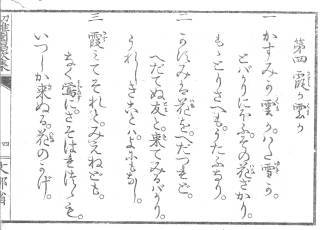 第四 霞か雲か
一 かすみか雲か。はた雪か。
とばかりにほふ。その花ざかり。
もゝとりさへも。うたふなり。
二 かすみは花を。へだつれど。
へだてぬ友と。来てみるばかり。
うれしきことは。よにもなし。
三 霞みてそれと。みえねども。
なく鶯に。さそはれつゝも。
いつしか来ぬる。花のかげ。
四 文部省